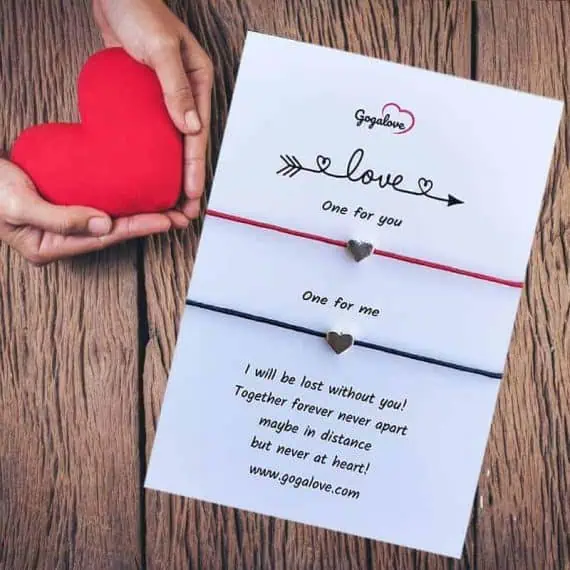 Gogalove
love
One for you
One for me
I will be lost without you!
Together forever never apart
maybe in distance
but never at heart!
www.gogalove.com